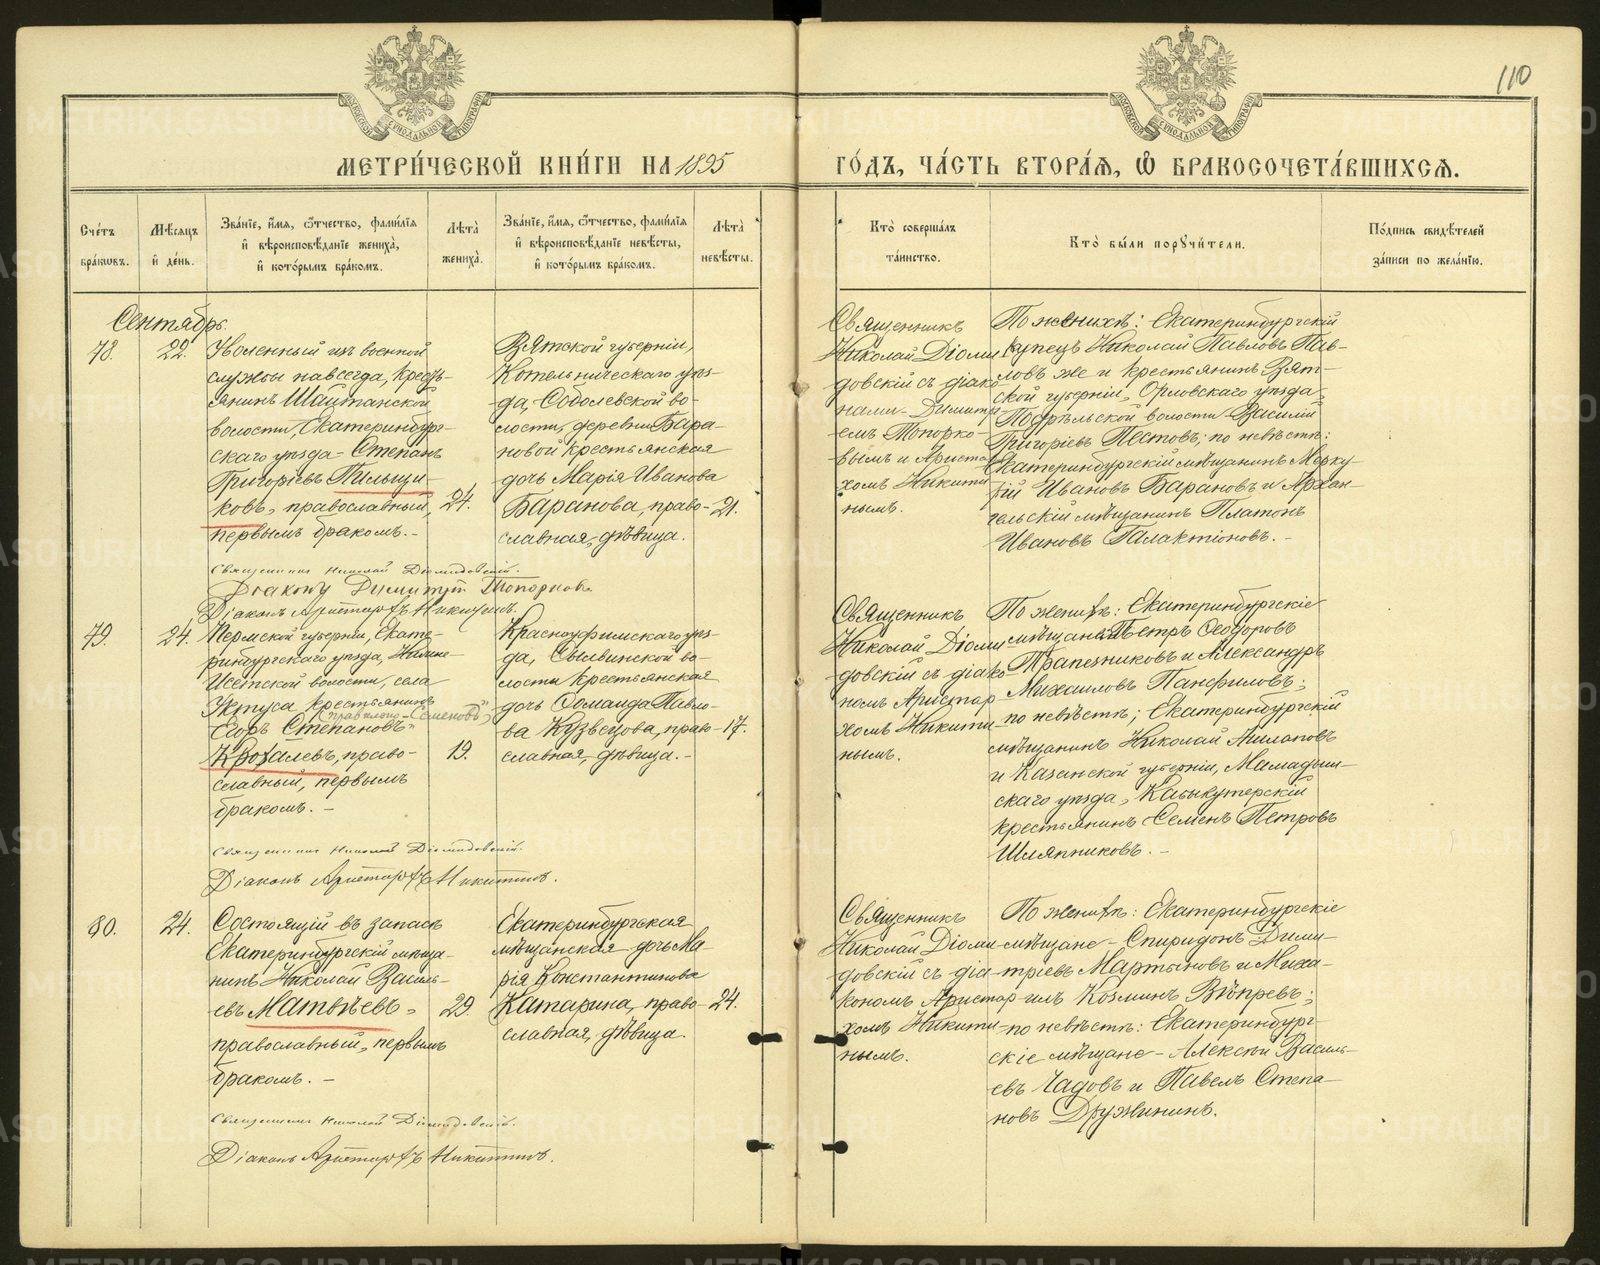 110
МЕТРИ́ЧЕСКОЙ КНИ́ГИ НА 1895 ГО́ДЪ, ЧА́СТЬ ВТОРА́Я, Ѽ БРАКОСОЧЕТА́ВШИХСЯ.
Сче́тъ
бра́кѡвъ.
Мѣ́сяцъ
и҆ де́нь.
Зва́нїе, и҆́мя, ѻ҆́тчество, фами́лїя
и҆ вѣроисповѣ́данїе жениха̀,
и҆ кото́рымъ бра́комъ.
Лѣ́та̀
жениха̀.
Зва́нїе, и҆́мя, ѻ҆́тчество, фами́лїя
и҆ вѣроисповѣ́данїе невѣ́сты,
и҆ кото́рымъ бра́комъ.
Лѣ́та̀
невѣ́сты.
Кто̀ соверша́лъ
та́инство.
Кто̀ бы́ли порꙋчи́тели.
По́дпись свидѣ́телей
за́писи по жела́нїю.
Сентябрь.
78.
22.
Уволенный изъ военной
службы навсегда, кресть-
янинъ Шайтанской
волости, Екатеринбург-
скаго уѣзда - Степанъ
Григорьевъ Пильщи-
ковъ, православный,
первымъ бракомъ. -
24.
Вятской губерніи,
Котельническаго уѣз-
да, Соболевской во-
лости, деревни Бара-
новой крестьянская
дочь Марія Иванова
Баранова, право-
славная, дѣвица.
21.
Священникъ
Николай Діоми
довскій съ діако
нами - Димитрі
емъ Топорко-
вымъ и Аристар
хомъ Никити
нымъ.
По женихѣ: Екатеринбургскій
купецъ Николай Павловъ Пав-
ловъ же и крестьянинъ Вят-
ской губерніи, Орловскаго уѣзда,
Подрѣльской волости Василій
Григорьевъ Пестовъ; по невѣстѣ:
Екатеринбургскій мѣщанинъ Мерку-
рій Ивановъ Барановъ и Архан-
гельскій мѣщанинъ Платонъ
Ивановъ Галактіоновъ. -
Священникъ Николай Діомидовскій.
Діаконъ Димитрій Топорковъ
Діаконъ Аристархъ Никитинъ.
79.
24.
Пермской губерніи, Екате-
ринбургскаго уѣзда, Нижне-
Исетской волости, села
Уктуса крестьянинъ
(правильно - Семеновъ)
Егоръ Степановъ
Кробалевъ, право-
славный, первымъ
бракомъ. -
19.
Красноуфимскаго уѣз-
да, Сылвинской во-
лости крестьянская
дочь Соломанида Павло-
ва Кузвецова, право-
славная, дѣвица. -
17.
Священникъ
Николай Діоми
довскій съ діако
номъ Аристар
хомъ Никити
нымъ.
По женихѣ: Екатеринбургскіе
мѣщане Петръ Ѳеодоровъ
Трапезниковъ и Александръ
Михаиловъ Панфиловъ;
по невѣстѣ; Екатеринбургскій
мѣщанинъ Николай
и Казанской губерніи, Мамадыш-
скаго уѣзда, Кабыкутерскій
крестьянинъ Семенъ Петровъ
Шляпниковъ. -
Священникъ Николай Діомидовскій.
Діаконъ Аристархъ Никитинъ.
80.
24.
Состоящій въ запасѣ
Екатеринбургскій мѣща-
нинъ Николай Василь-
евъ Матвѣевъ,
православный, первымъ
бракомъ. -
29.
Екатеринбургская
мѣщанская дочь Ма-
рія Константинова
Катарина, право-
славная, дѣвица.
24.
Священникъ
Николай Діоми-
довскій съ діа-
кономъ Аристар
хомъ Никити
нымъ.
По женихѣ: Екатеринбургскіе
мѣщане - Спиридонъ Дими-
тріевъ Мартыновъ и Миха-
илъ Козминъ Вѣпревъ;
по невѣстѣ: Екатеринбург-
скіе мѣщане - Алексѣй Василь-
евъ Чадовъ и Павелъ Степа-
новъ Дружининъ.
Священникъ Николай Діомидовскій.
Діаконъ Аристархъ Никитинъ.